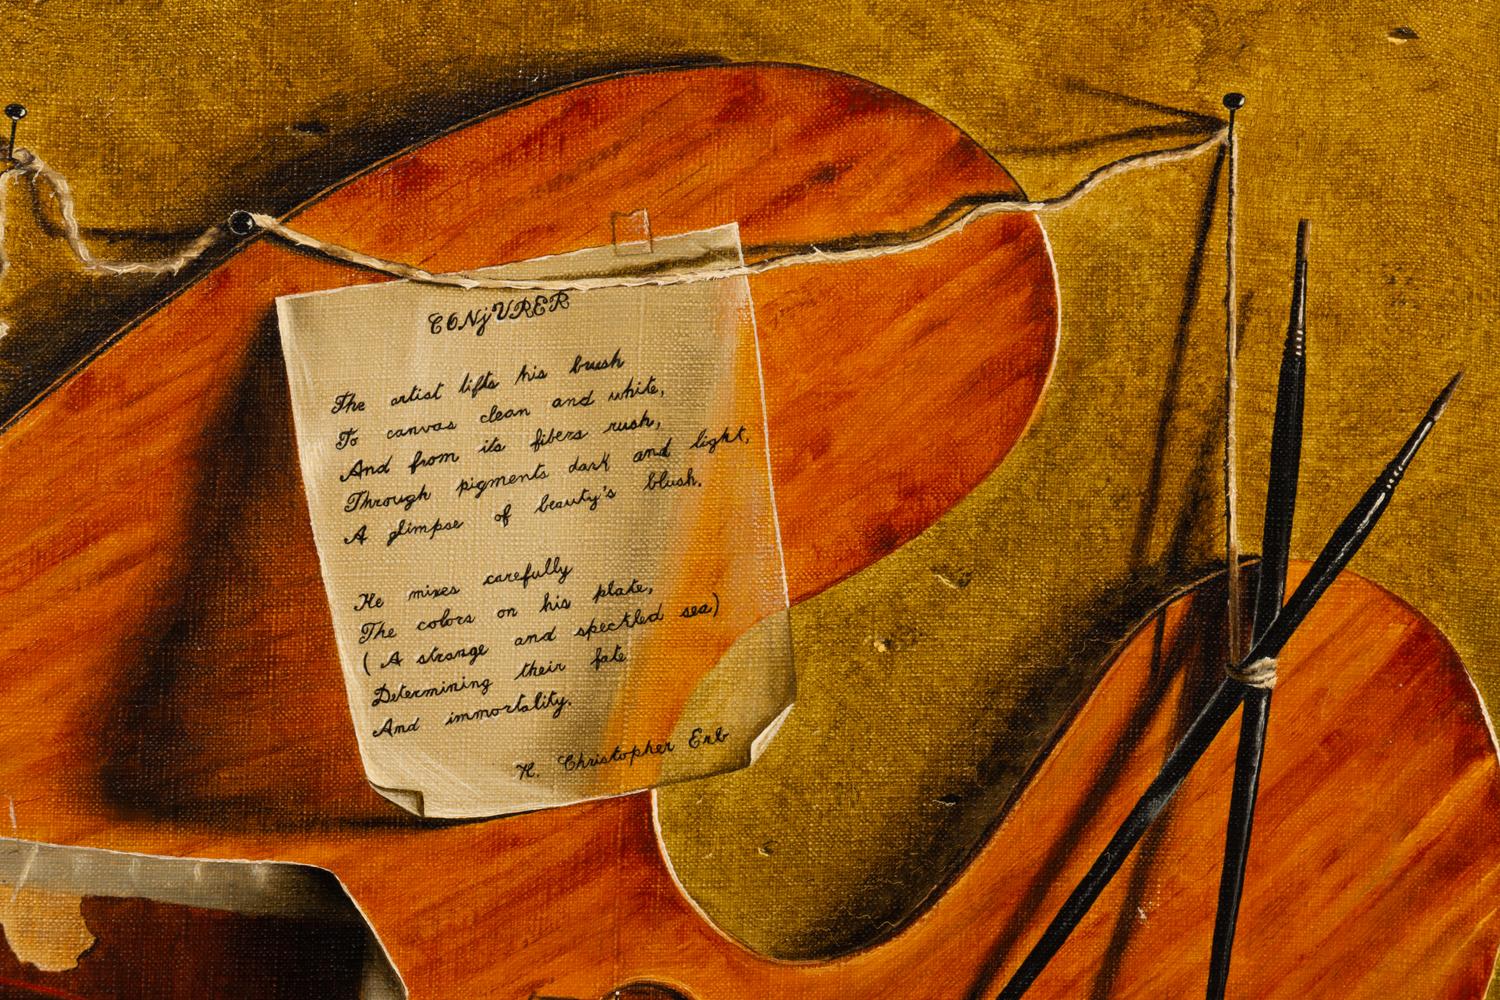 CONjURER
The artist lifts his brush
To canvas clean and white,
And from its fibers rush,
Through pigments dark and light,
A glimpse of beauty's blush.
He mixes carefully
The colors on his plate,
(A strange and speckled sea)
Determining their fate
And immortality.
K. Christopher Erb